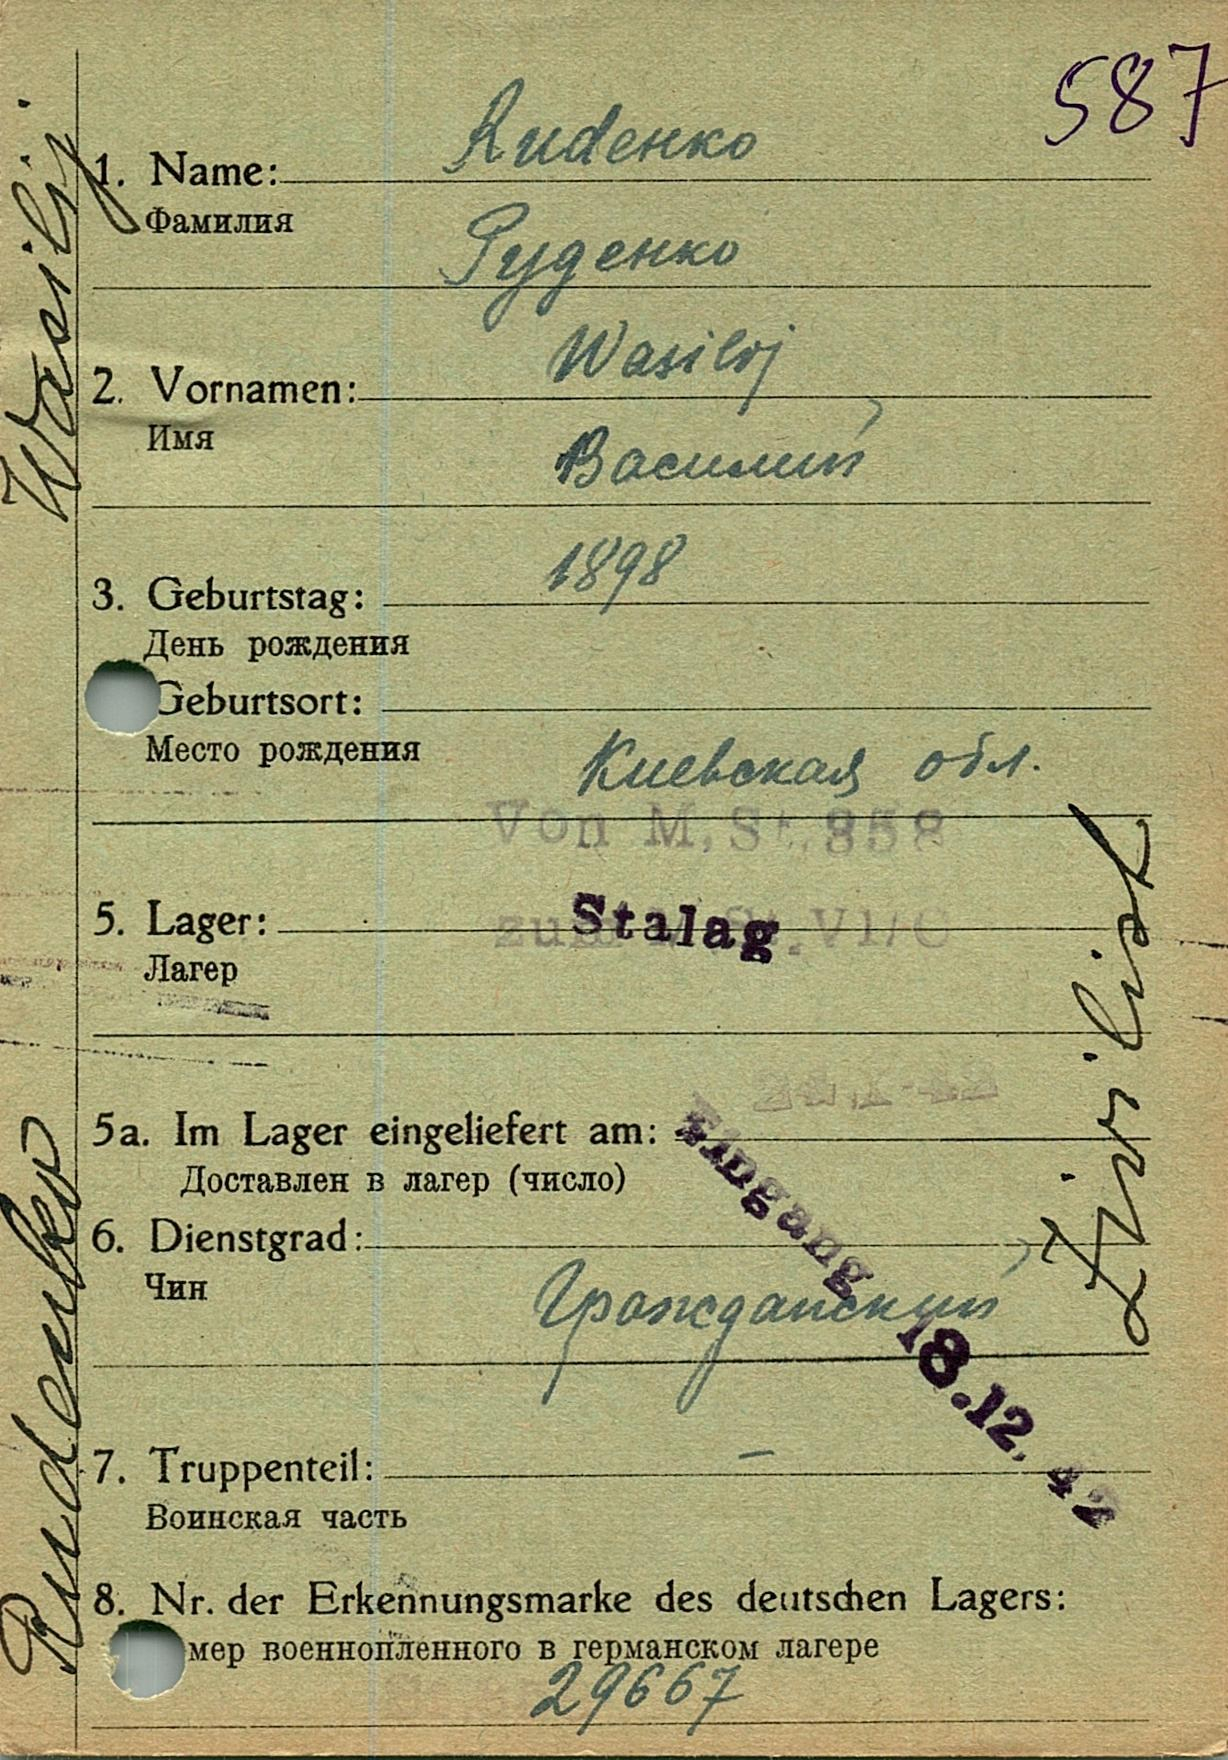 587
1. Name: Rudenko
Фамилия
Руденко
2. Vornamen: Wasilij
Имя
Василий
3. Geburtstag: 1898
День рождения
Geburtsort:
Место рождения
Киевская обл.
Von M.St. 358
5. Lager: Stalag
zum VI/C
Лагер
24.X.42
5a. Im Lager eingeliefert am:
Доставлен в лагер (число)
Eingang 18.12.42
6. Dienstgrad:
Чин
Гражданский
7. Truppenteil: –
Воинская часть
8. Nr. der Erkennungsmarke des deutschen Lagers:
мер военнопленного в германском лагере
29667
Rudenko Wasilij
Zivilist